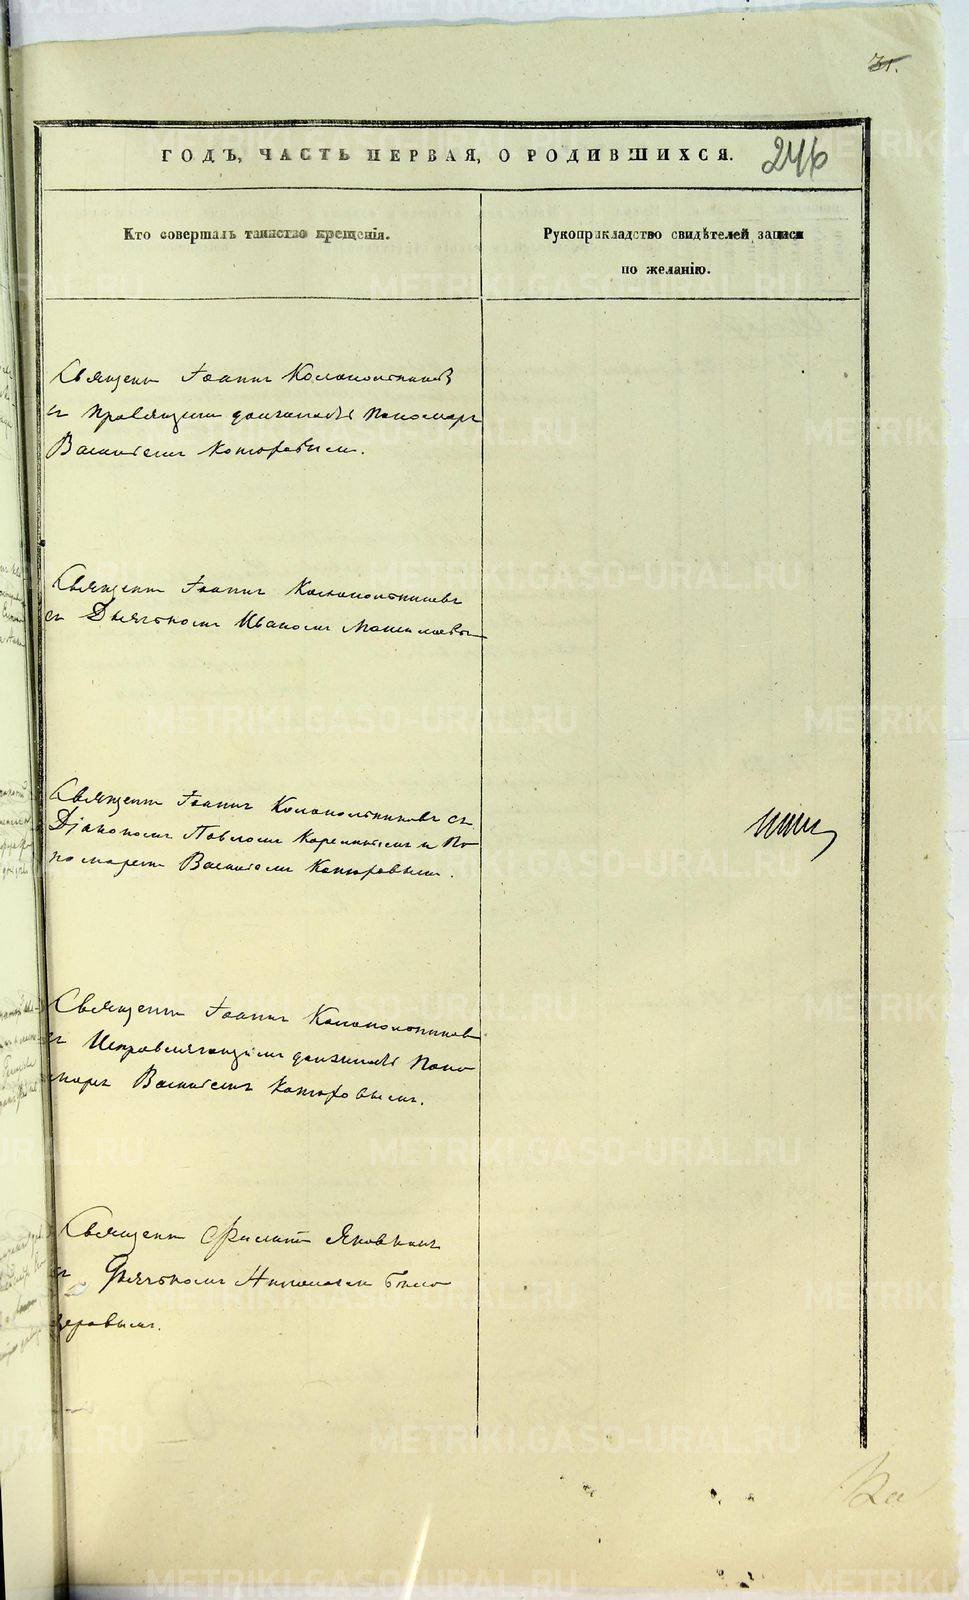 31.
ГОДЪ, ЧАСТЬ ПЕРВАЯ, О РОДИВШИХСЯ. 246
Кто совершалъ таинство крещенія.
Рукоприкладство свидѣтелей записи
по желанію.
Священн Іоаннъ Колокольниковъ
съ Правящимъ должность Пономаря
Василіемъ Которовымъ.
Священн Іоаннъ Колокольниковъ
съ Дьячкомъ Иваномъ
Священн Іоаннъ Колокольниковъ съ
Діакономъ Павломъ и По
номаремъ Василіемъ Которовымъ.
Священн Іоаннъ Колокольников
съ Исправляющимъ должность Поно
маря Василіемъ Которовымъ.
Священн Филатъ Яковкинъ
съ Дьячкомъ Николаемъ Бѣло
зеровымъ.
METRIKI.GASO-URAL.RU